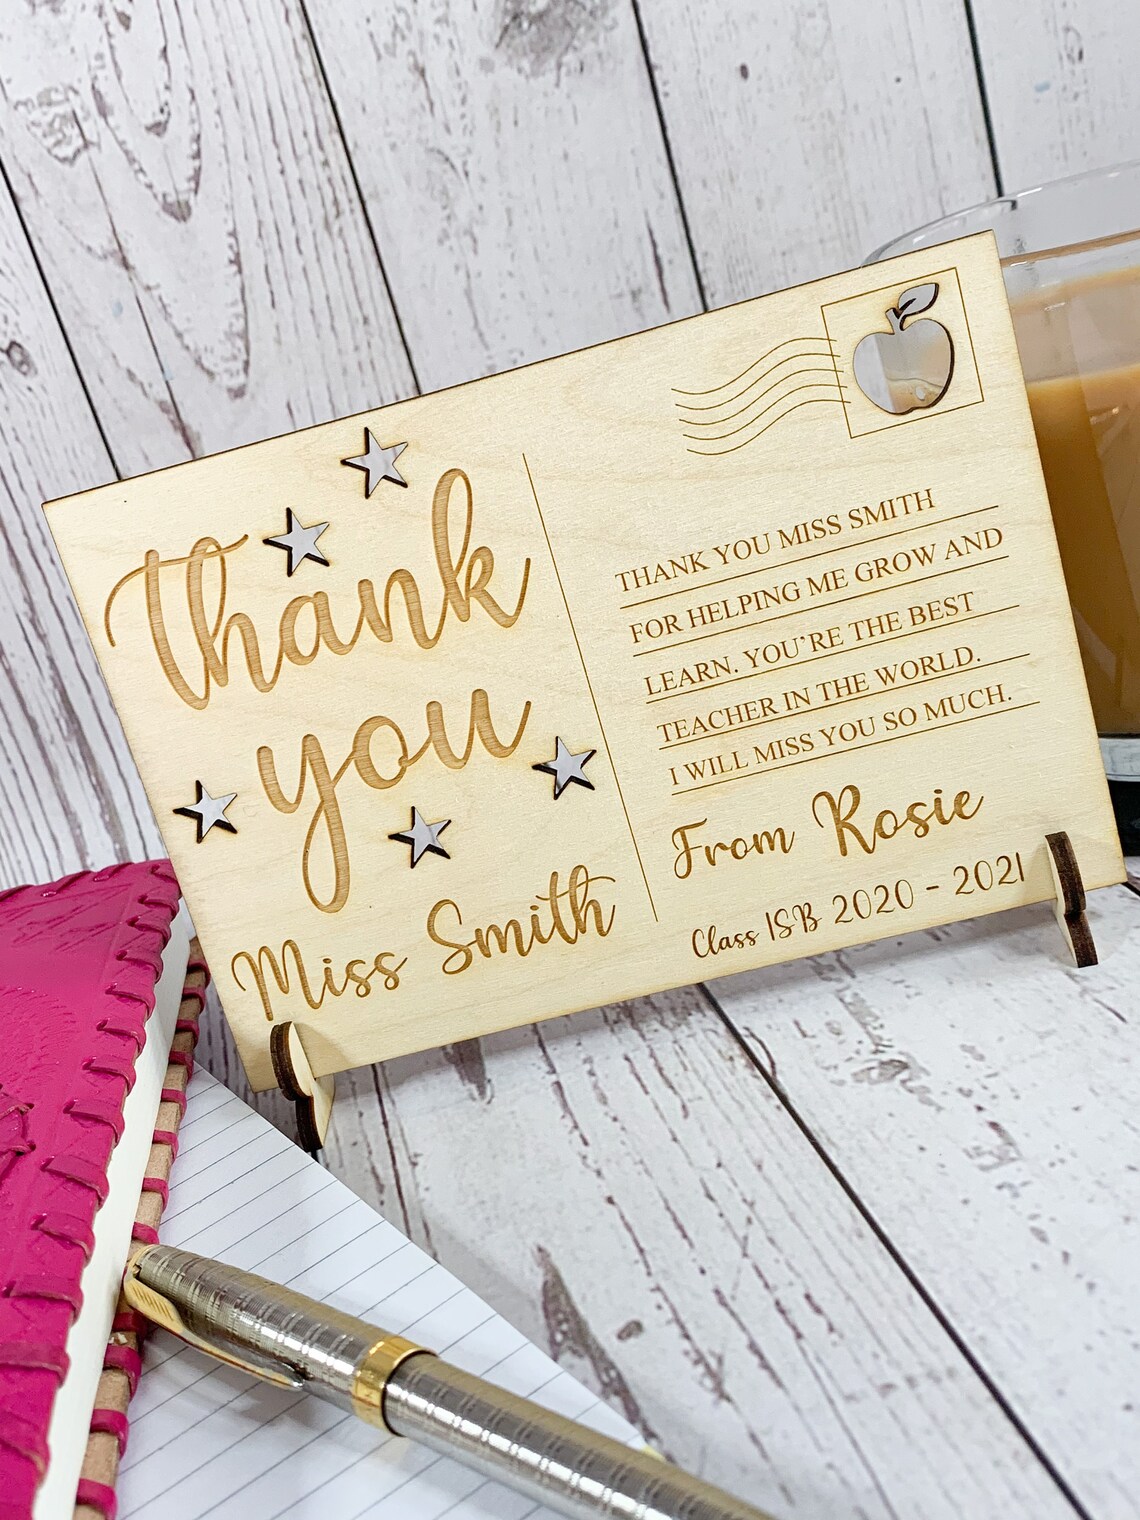 thank
you
Miss Smith
THANK YOU MISS SMITH
FOR HELPING ME GROW AND
LEARN. YOU'RE THE BEST
TEACHER IN THE WORLD.
I WILL MISS YOU SO MUCH.
From Rosie
Class 1SB 2020 - 2021